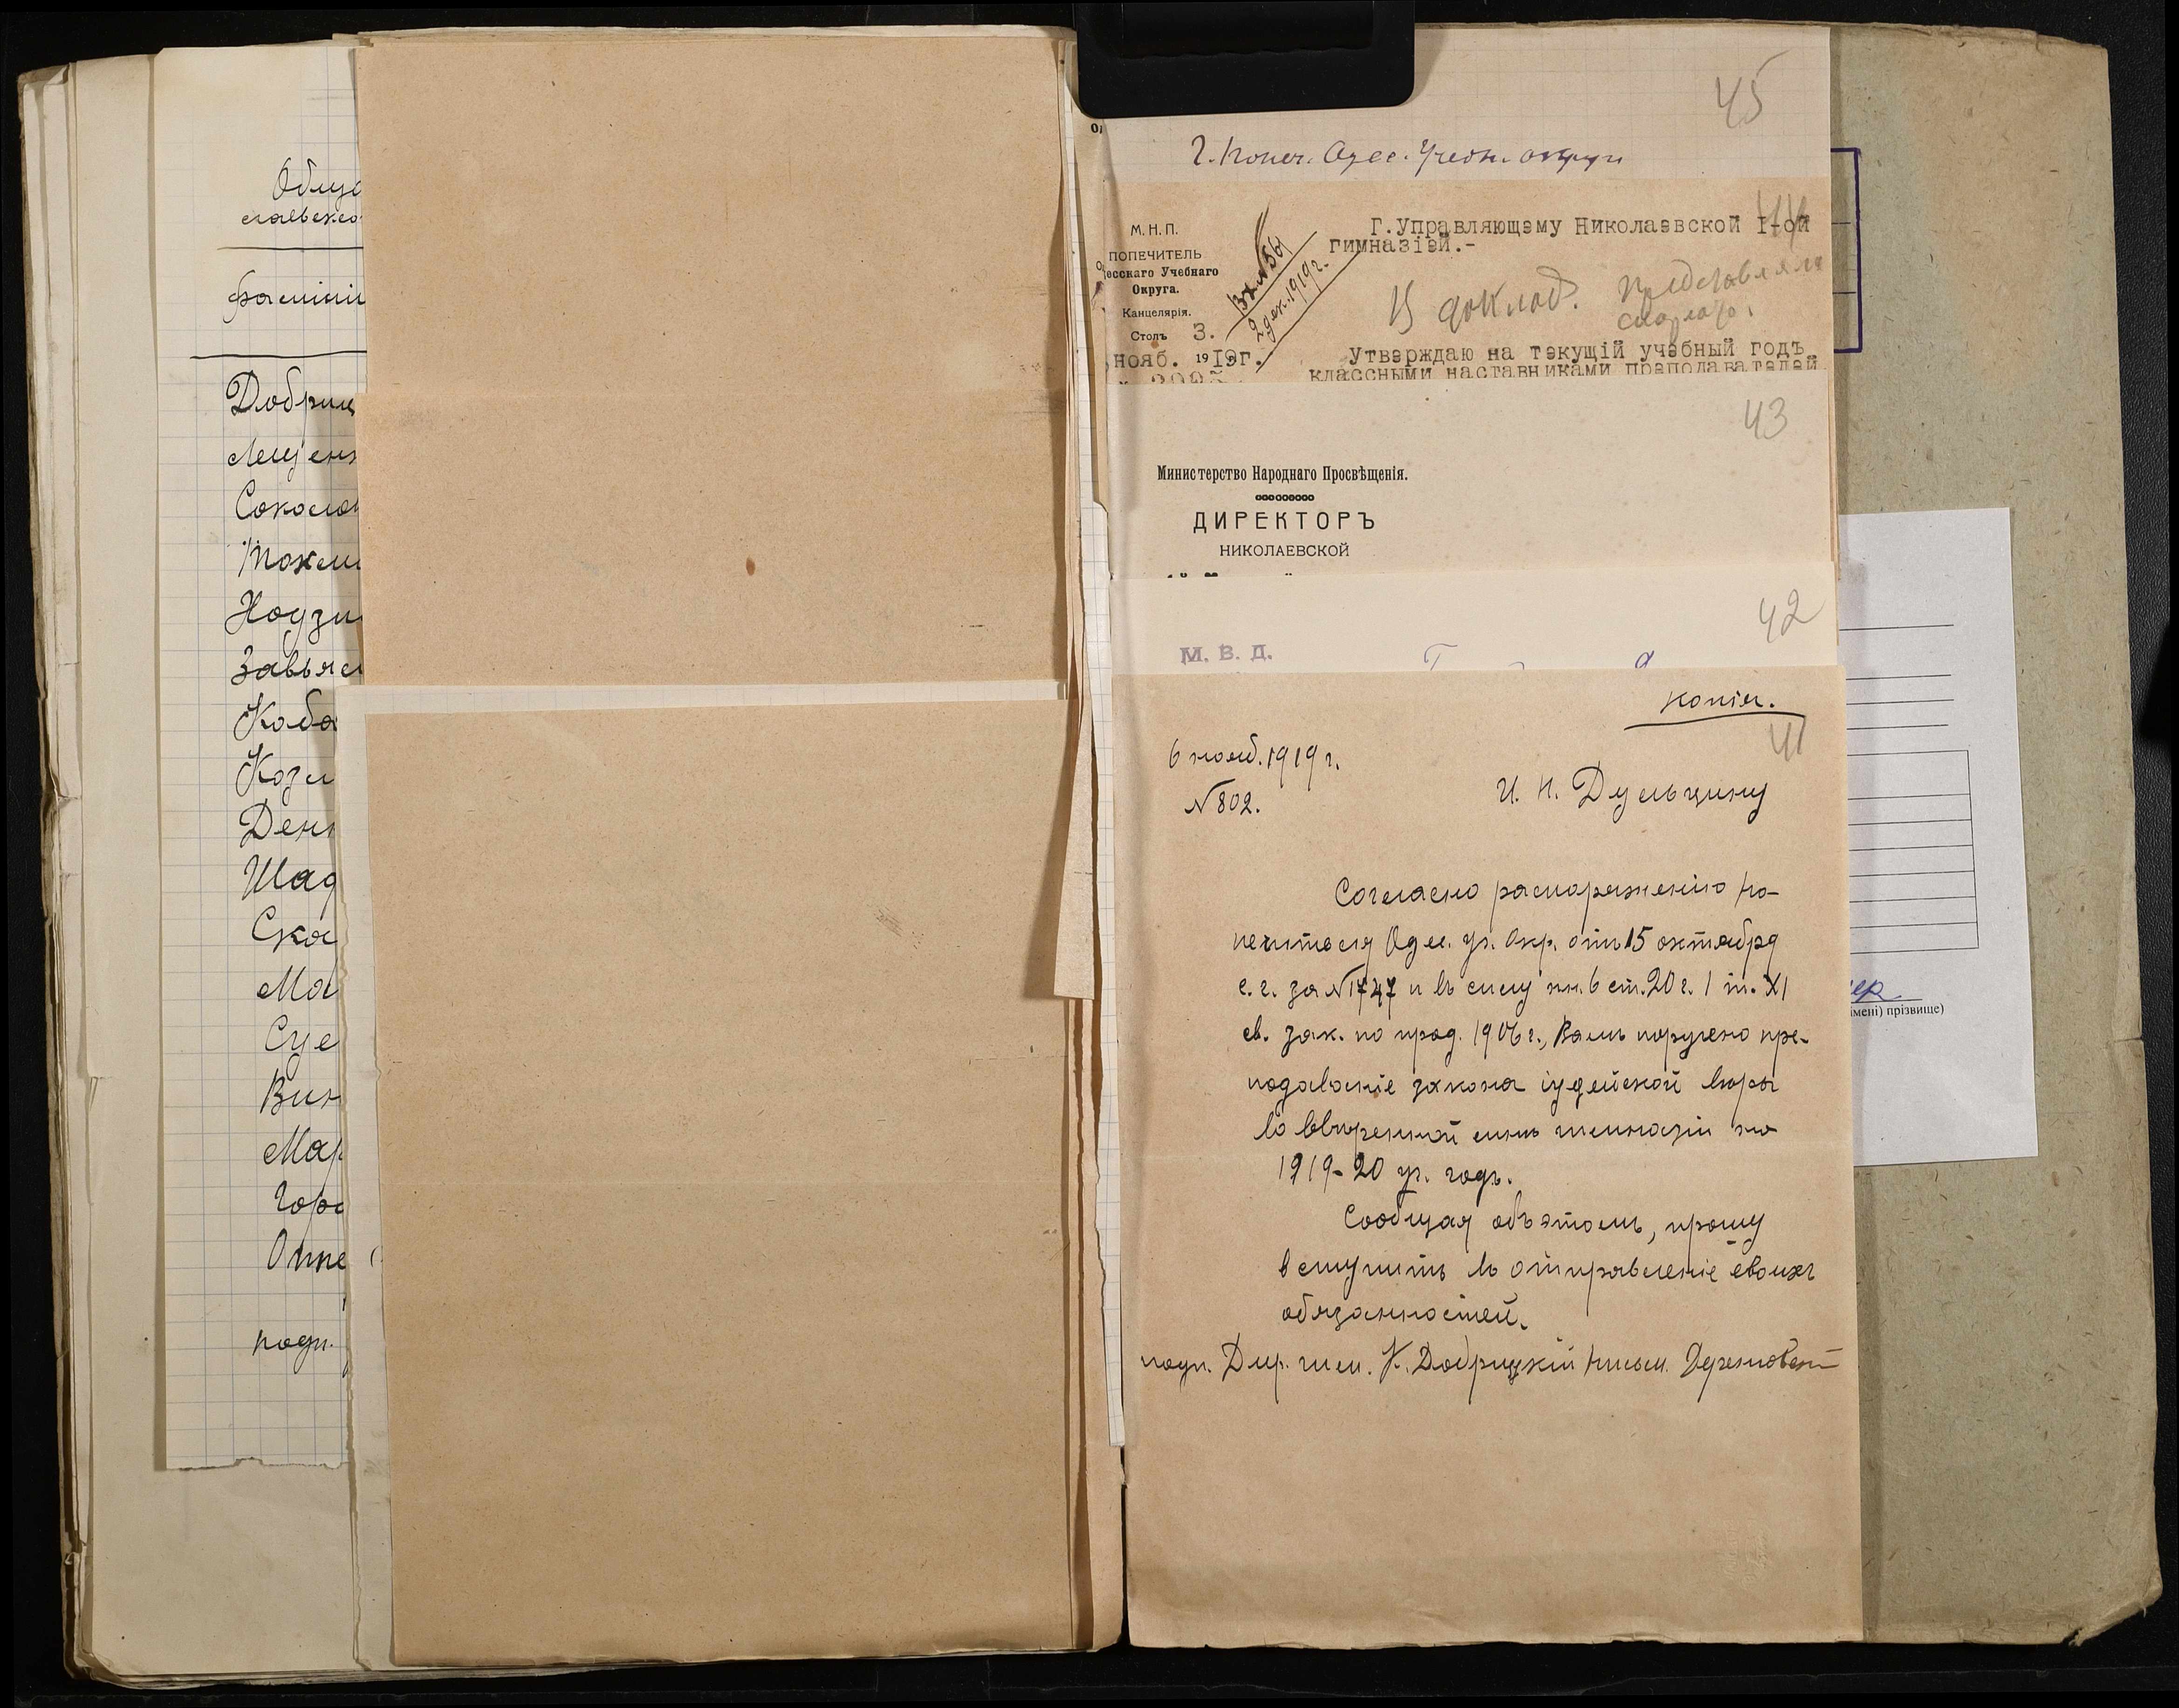 Общ
славско
фамилія
Добриц
Лещен
Соколо
Ножи
Ходзи
Завьял
Каба
Козл
Ден
Шад
Ска
Ма
Суе
Вин
Мар
Горо
Отте
подп.
45
Г. Попеч. Одес. Учебн. округа
44
М. Н. П.
ПОПЕЧИТЕЛЬ
десскаго Учебнаго
Округа.
Канцелярія.
Столъ 3.
нояб. 1919г.
Вх. № 561
2 дек. 1919 г.
Г.Управляющему Николаевской I-ой
гимназіей.-
В доклад.
Утверждаю на текущій учебный годъ
классными наставниками преподавателей
43
Министерство Народнаго Просвѣщенія.
ДИРЕКТОРЪ
НИКОЛАЕВСКОЙ
42
М. В. Д.
копія.
41
6 нояб. 1919 г.
№ 802.
И. Н. Дульцину
Согласно распоряженію по-
печителя Одес. уч. Окр. отъ 15 октября
с. г. за № 1747 и въ силу пн. 6 ст. 20 г. 1 т. XI
св. зак. по прод. 1906 г., Вамъ поручено пре-
подаваніе закона іудейской вѣры
во ввѣренной мнѣ гимназіи на
1919-20 уч. годъ.
Сообщая объ этомъ, прошу
вступить въ отправленіе своихъ
обязанностей.
подп. Дир. гим. К. Добрицкій письм.
імені) прізвище)